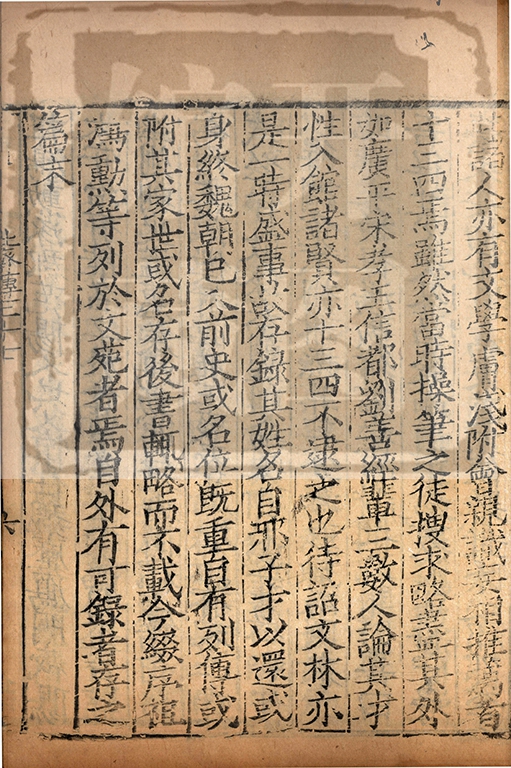 詔人亦有文學膚淺附會親識妄相推薦者
十三四焉雖然當時操筆之徒搜求略盡其外
如廣平宋孝王信都劉善經輩三數人論其才
性入館諸賢亦十三四不逮之也待詔文林亦
是一時盛事故存錄其姓名自邢子才以還或
身終魏朝已入前史或名位既重自有列傳或
附其家世或名存後書輒略而不載今綴序祖
鴻勳等列於文苑者焉自外有可錄者存之
篇末